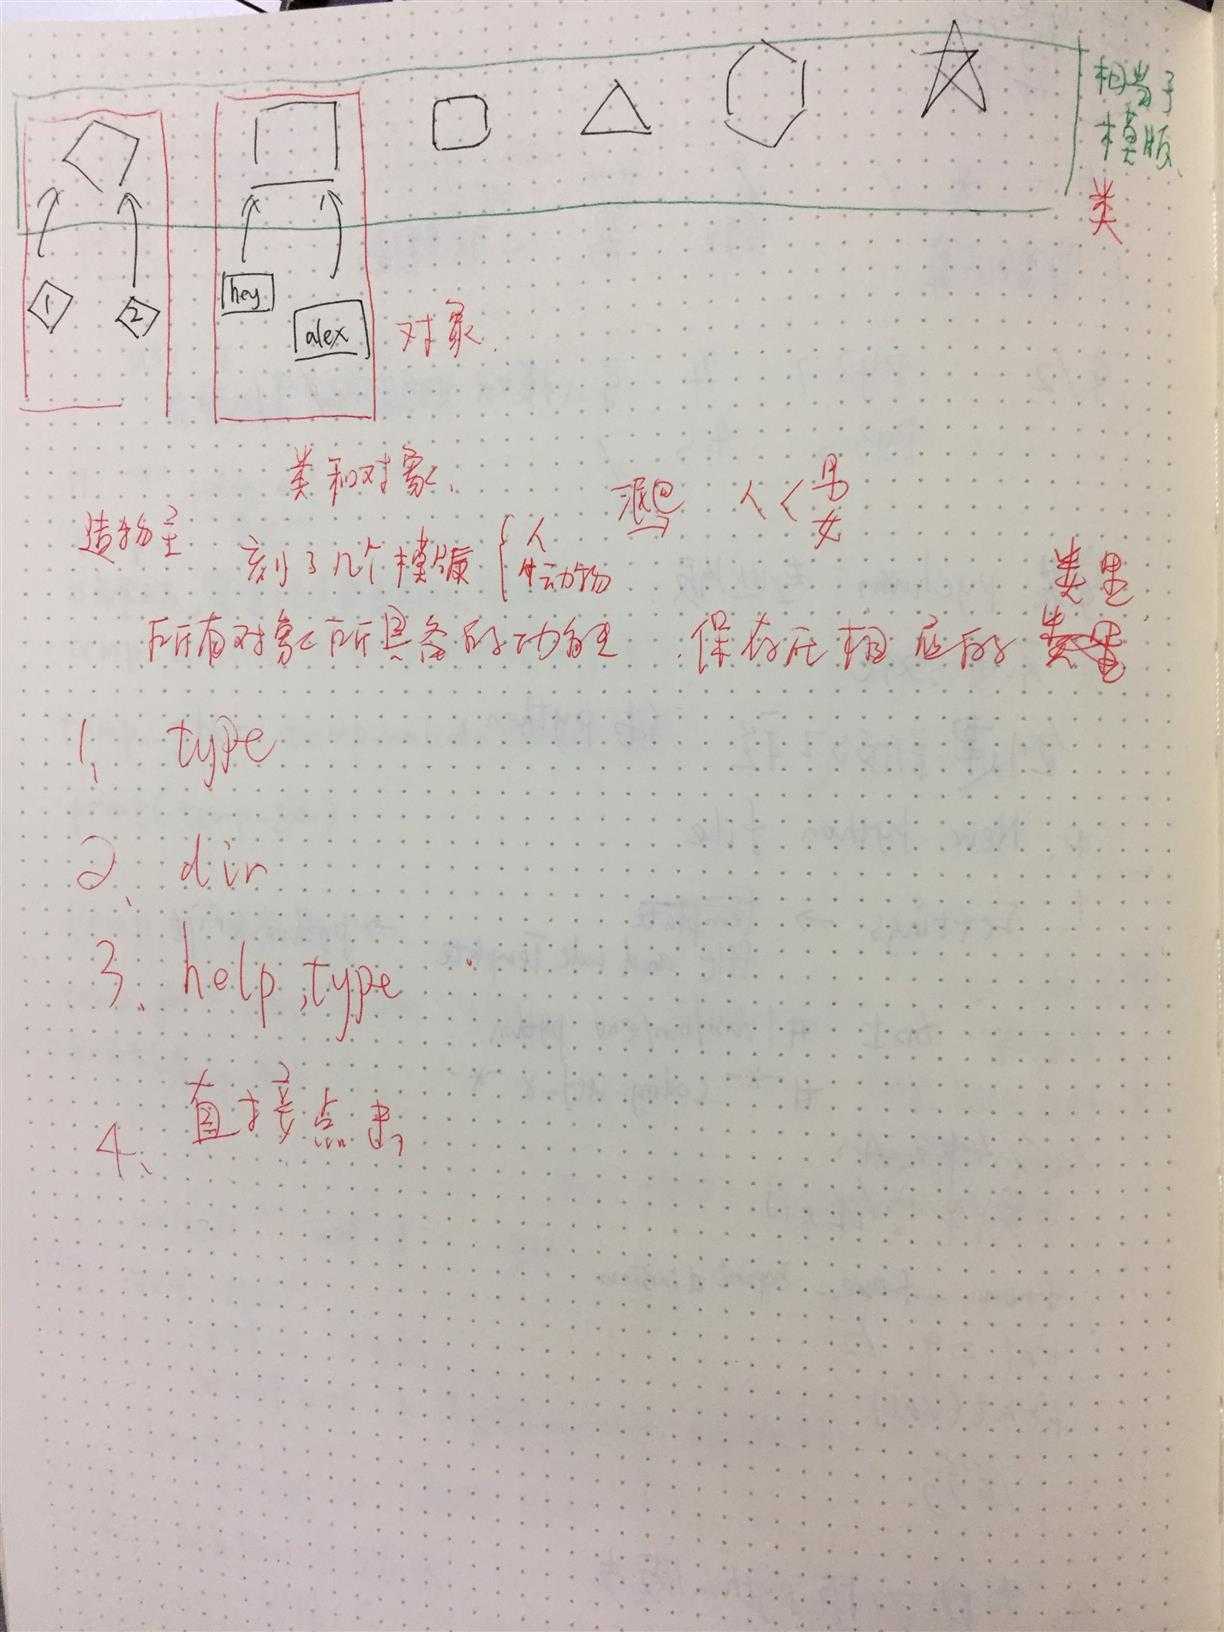 相当于
模版
类
1
2
hey
alex
对象
类和对象
造物主
刻了几个模版 人 动物
泥巴 人 男 女
所有对象所具备的功能 保存在相应的类里
1、type
2、dir
3、help,type
4、直接点击